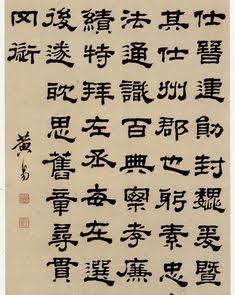 仕晉建勛封魏爰暨
其仕州郡也躬素忠
法通識百典案孝廉
績特拜左丞每在選
後遂耽思舊章尋貫
罔
黃易